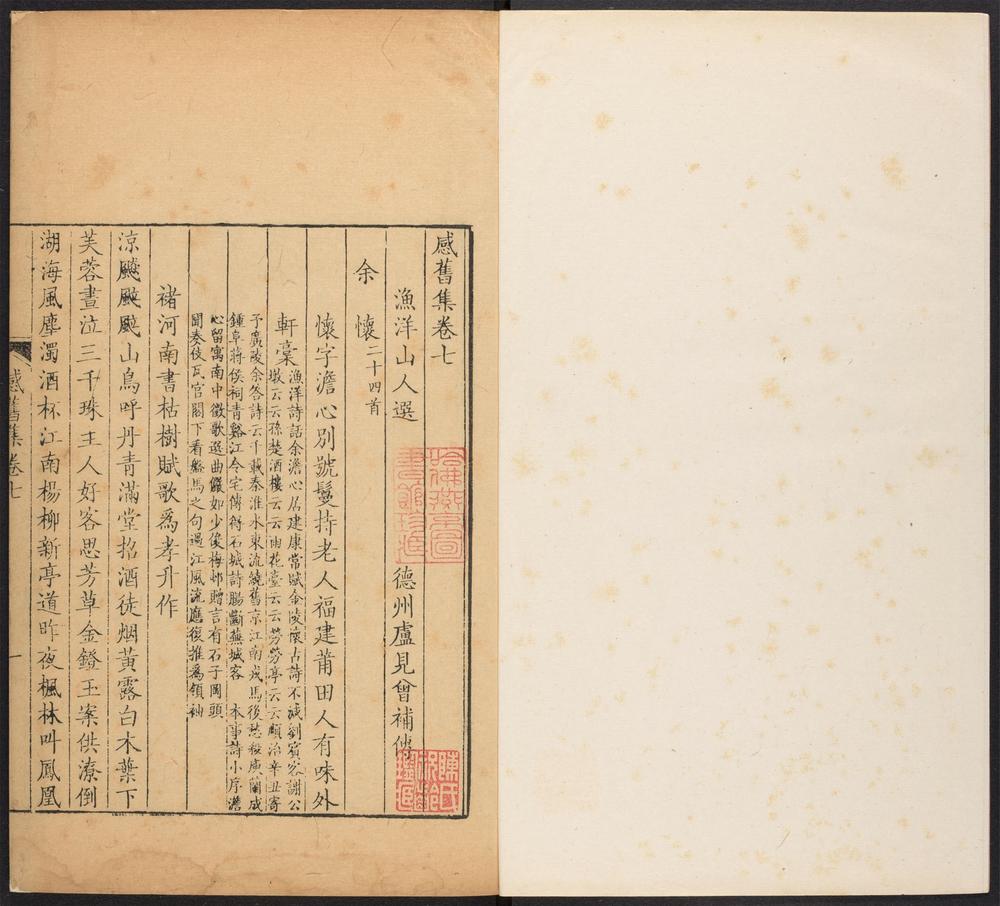 感舊集卷七
漁洋山人選 德州盧見曾補傳
余 懷二十四首
懷字澹心別號鬘持老人福建莆田人有味外
軒稾
漁洋詩話余澹心居建康常賦金陵懷古詩不減劉賓客謝公
墩云云孫楚酒樓云云雨花臺云云勞勞亭云云順治辛丑寄
予廣陵余答詩云千載秦淮水東流繞舊京江南戎馬後愁殺庾蘭成
鍾阜蔣侯祠青谿江令宅傳得石城詩腸斷蕪城客 本事詩小序澹
心留寓南中徵歌選曲儼如少俊梅邨贈言有石子岡頭
聞奏伎瓦官閣下看盤馬之句過江風流應復推爲領袖
褚河南書枯樹賦歌爲孝升作
涼山鳥呼丹青滿堂招酒徒烟黃露白木葉下
芙蓉晝泣三千珠主人好客思芳草金鐙玉案供潦倒
湖海風塵濁酒杯江南楊柳新亭道昨夜楓林叫鳳凰
感舊集 卷七
一
哈佛燕京圖
書館珍藏
陳氏